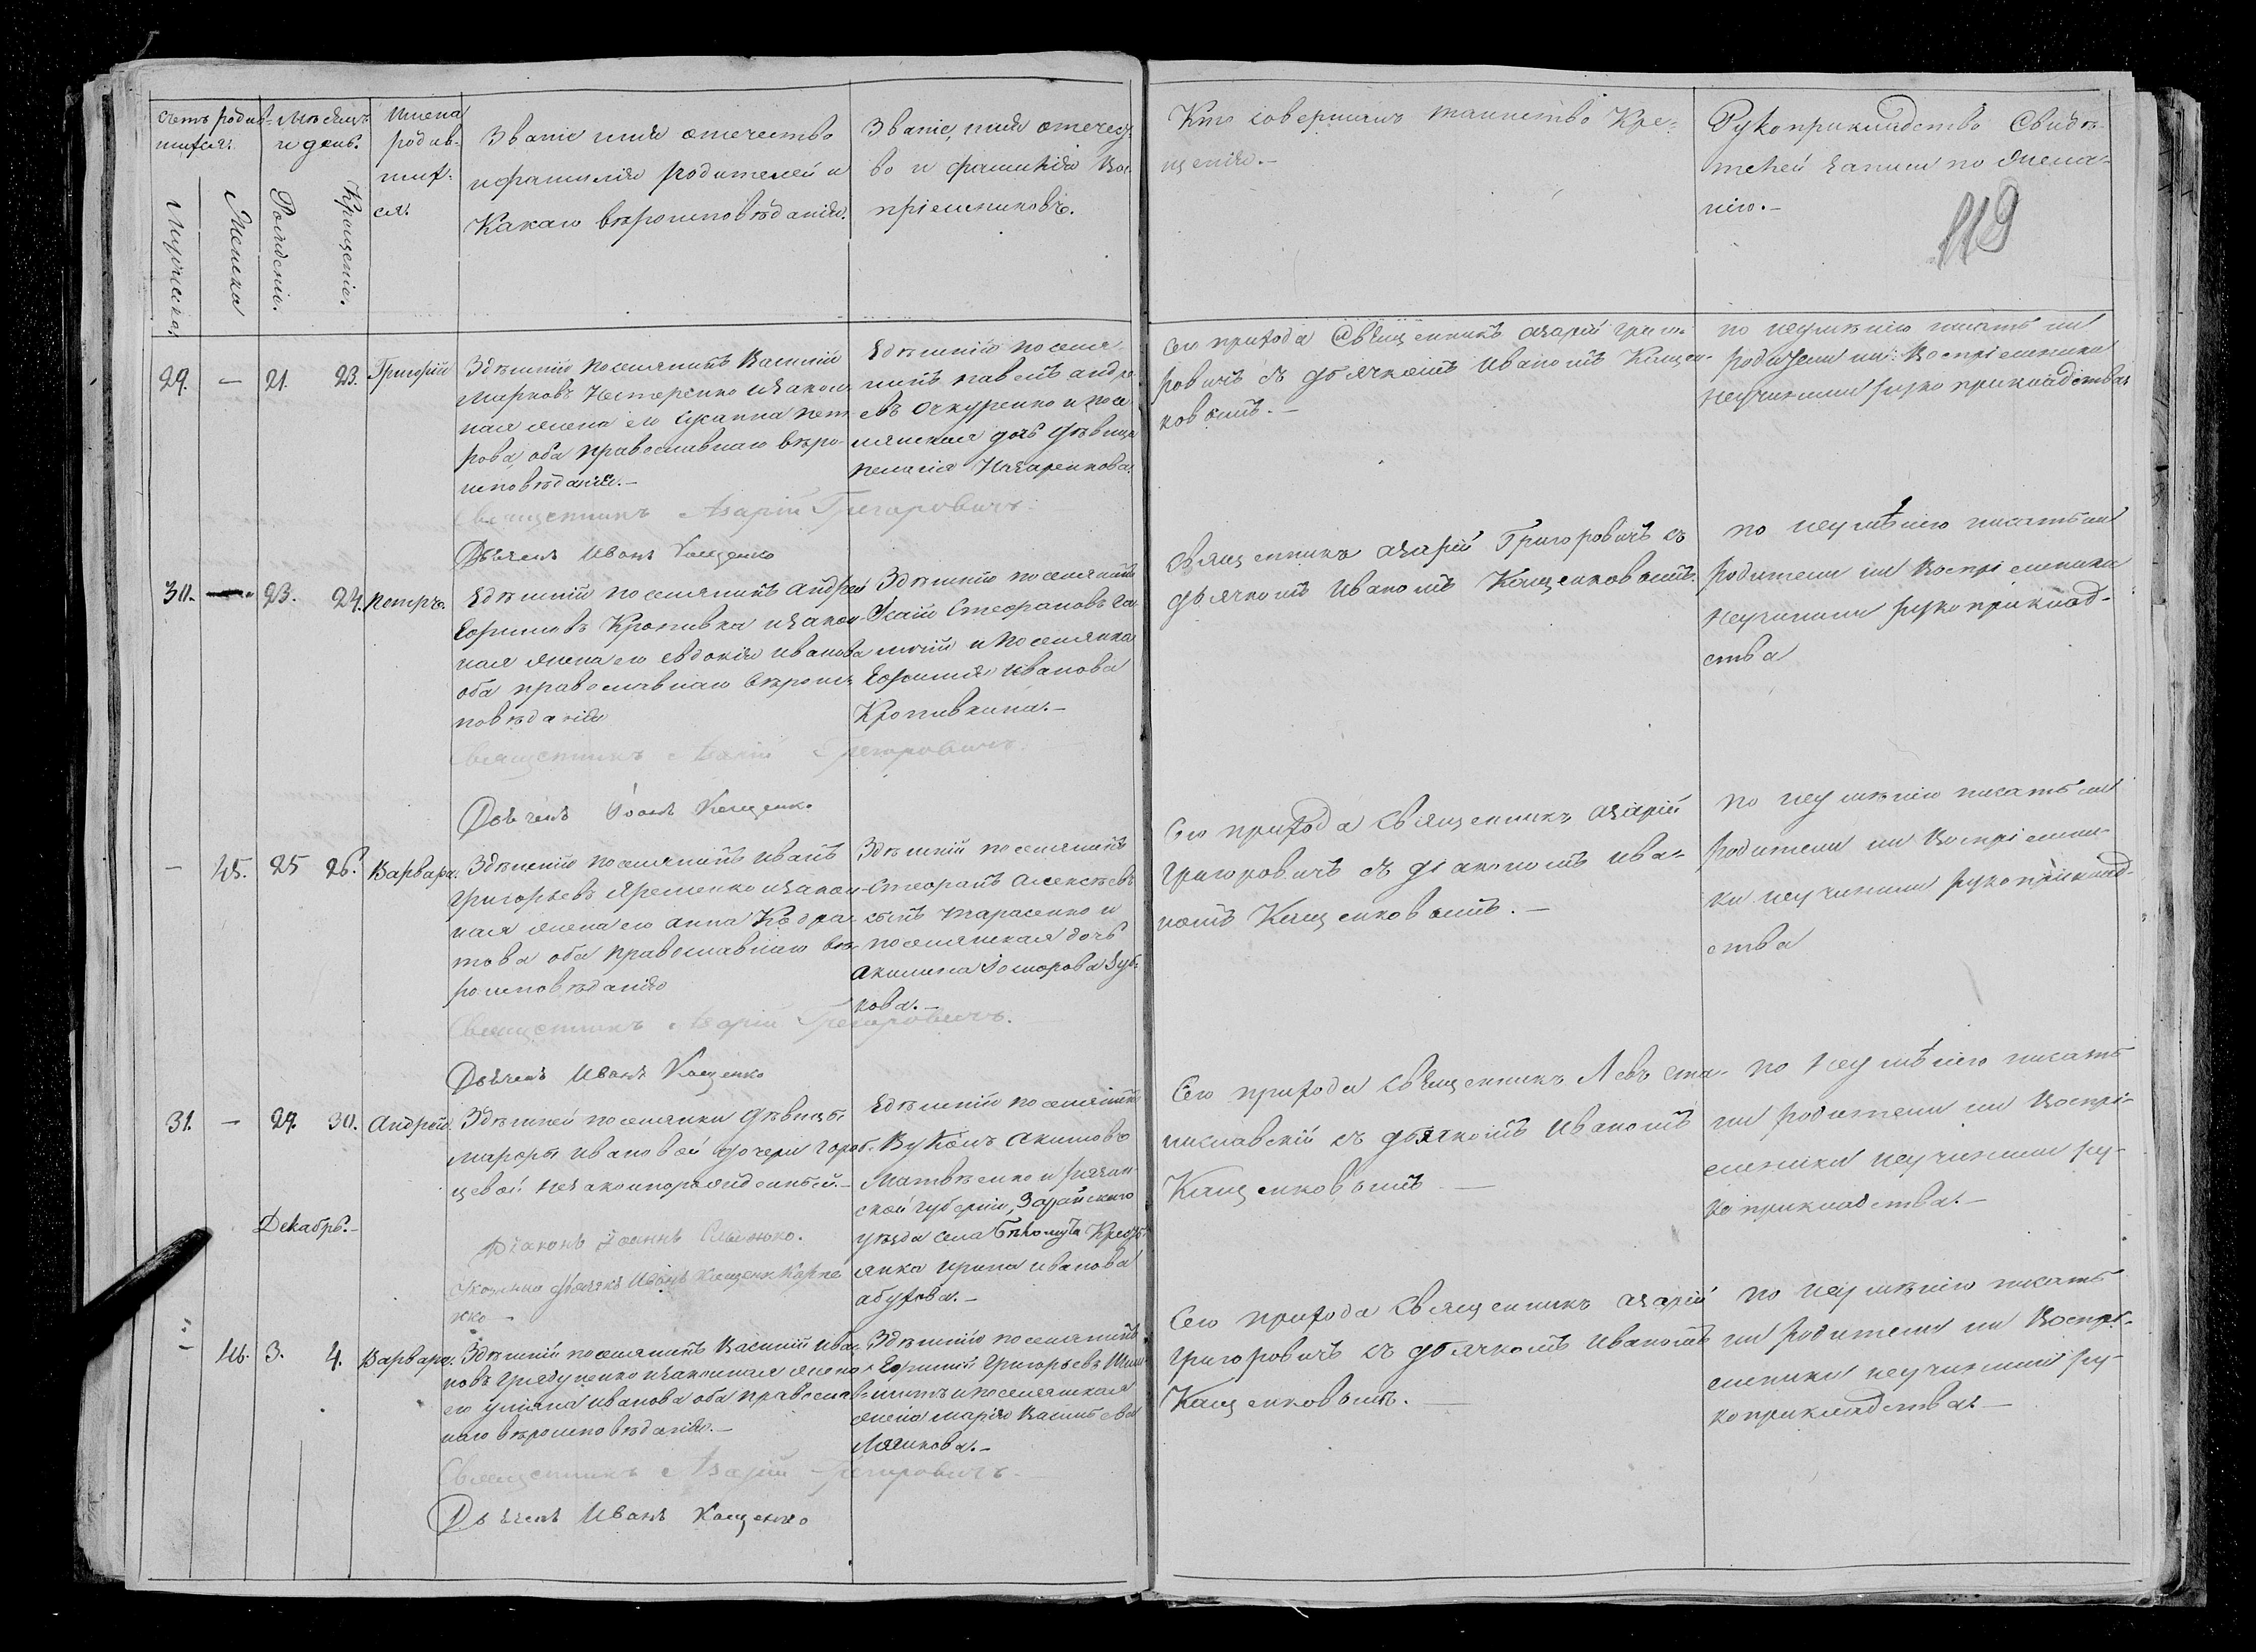 Счетъ родив-
шихся.
Мѣсяцъ
и день.
Имена
родив-
ших-
ся.
Званіе имя отечество
и фамилія родителей и
Какаго вѣроисповѣданія.
Званіе, имя отечест-
во и фамилія Вос-
пріемниковъ.
Кто совершалъ таинство Кре-
щенія.
Рукоприкладство Свидѣ-
телей записи по желанію
нію.
119
Мужеска.
Женска
Рожденія.
Крещенія.
29. — 21. 23. Григорій
Здѣшній поселянинъ Василій
Марковъ Нестеренко и закон-
ная жена его Сусанна Пет-
рова, оба православнаго вѣро-
исповѣданія.
Здѣшній поселя-
нинъ Павелъ Андре-
евъ Очкуренко и посе-
лянская дочь дѣвица
Пелагія Назаренкова.
Сего прихода Священникъ Азарій Григо-
ровичъ съ дьячкомъ Иваномъ Кащен-
ковымъ.
по неумѣнію писать ни
родители ни Воспріемники
неучинили рукоприкладства
Священникъ Азарій Григоровичъ
Дьячекъ Иванъ Кащенко
30. — 23. 24. Петръ.
Здѣшній поселянинъ Андрей
Ефимовъ Кропивка и закон-
ная жена его Евдокія Иванова
оба православнаго вѣроис-
повѣданія
Здѣшній поселянинъ
Стефановъ
и поселянка
Ефимія Иванова
Кропивкина.
Священникъ Азарій Григоровичъ съ
дьячкомъ Иваномъ Кащенковымъ.
по неумѣнію писать ни
родители ни Воспріемники
неучинили рукоприклад-
ства
Священникъ Азарій Григоровичъ
Дьячекъ Іоанъ Кащенко
— 45. 25 26. Варвара.
Здѣшній поселянинъ Иванъ
Григорьевъ Яременко и закон-
ная жена его Анна Кодра-
това оба православнаго вѣ-
роисповѣданія
Здѣшній поселянинъ
Стефанъ Алексѣевъ
сынъ Тарасенко и
поселянская дочь
Акилина Федорова Зуб-
кова.
Сего прихода Священникъ Азарій
Григоровичъ съ діакономъ Ива-
номъ Кащенковымъ.
по неумѣнію писать ни
родители ни Воспріемни-
ки неучинили рукоприклад-
ства
Священникъ Азарій Григоровичъ.
Дьячекъ Иванъ Кащенко
31. — 29. 30. Андрей.
Здѣшней поселянки дѣвицы
Марфы Ивановой дочери Гороб-
цевой незаконнорожденный.
Здѣшній поселянинъ
Вуколъ Акимовъ
Матвѣенко и Рязан-
ской губерніи, Зарайскаго
уѣзда села Бѣломута Кресть-
янка Ирина Иванова
Абухова.
Сего прихода Священникъ Левъ Ста-
ниславскій съ дьячкомъ Иваномъ
Кащенковымъ
по неумѣнію писать
ни родители ни Воспрі-
емники неучинили ру-
коприкладства.
Діаконъ Іоаннъ
дьячекъ Иванъ Кащенко
Декабрь.
— 46. 3. 4. Варвара.
Здѣшній поселянинъ Василій Ива-
новъ Грядуненко и законная жена
его Уліяна Иванова оба православ-
наго вѣроисповѣданія.
Здѣшній поселянинъ
Ефимій Григорьевъ
и поселянская
жена Марія Васильева
Сего прихода Священникъ Азарій
Григоровичъ съ дьячкомъ Иваномъ
Кащенковымъ.
по неумѣнію писать
ни родители ни Воспрі-
емники неучинили ру-
коприкладства.
Священникъ Азарій Григоровичъ
Дьячекъ Иванъ Кащенко